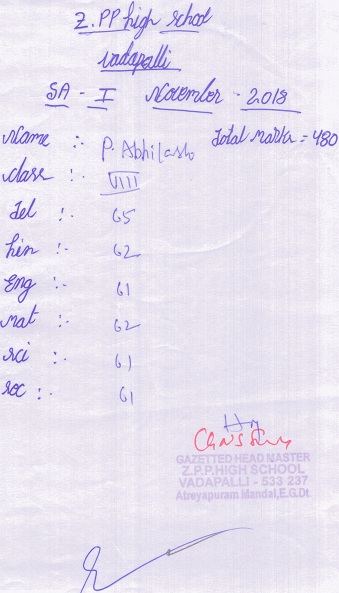 Z.PP high school
Vadapalli
SA - I November - 2018
Name :- P. Abhilash Total marks = 480
class :- VIII
Tel :- 65
hin :- 62
Eng :- 61
mat :- 62
sci :- 61
soc :- 61
GAZETTED HEAD MASTER
Z.P.P.HIGH SCHOOL
VADAPALLI - 533 237
Atreyapuram Mandal,E.G.Dt.